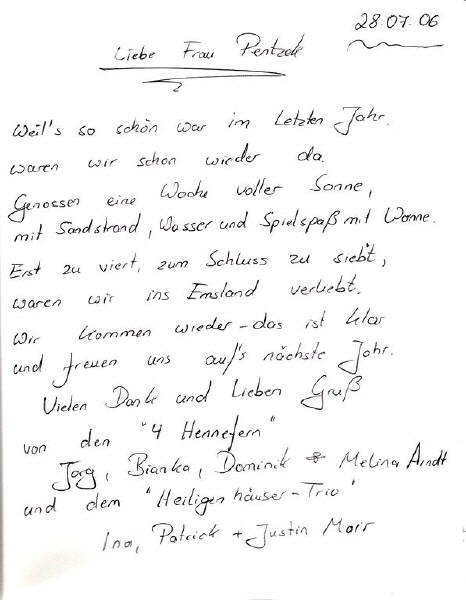 28.07.06
Liebe Frau Pentzek
Weil's so schön war im letzten Jahr.
waren wir schon wieder da.
Genossen eine Woche voller Sonne,
mit Sandstrand, Wasser und Spielspaß mit Wonne.
Erst zu viert, zum Schluss zu siebt,
waren wir ins Emsland verliebt.
Wir kommen wieder - das ist klar
und freuen uns auf's nächste Jahr.
Vielen Dank und Lieben Gruß
von den "4 Hennefern"
Jörg, Bianka, Dominik & Melina Arndt
und dem "Heiligenhäuser-Trio"
Ina, Patrick + Justin Mair